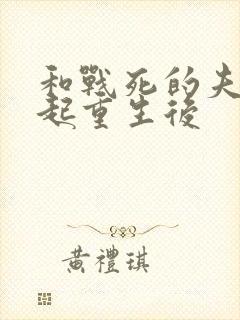 和戰死的夫
起重生後
黃禮琪